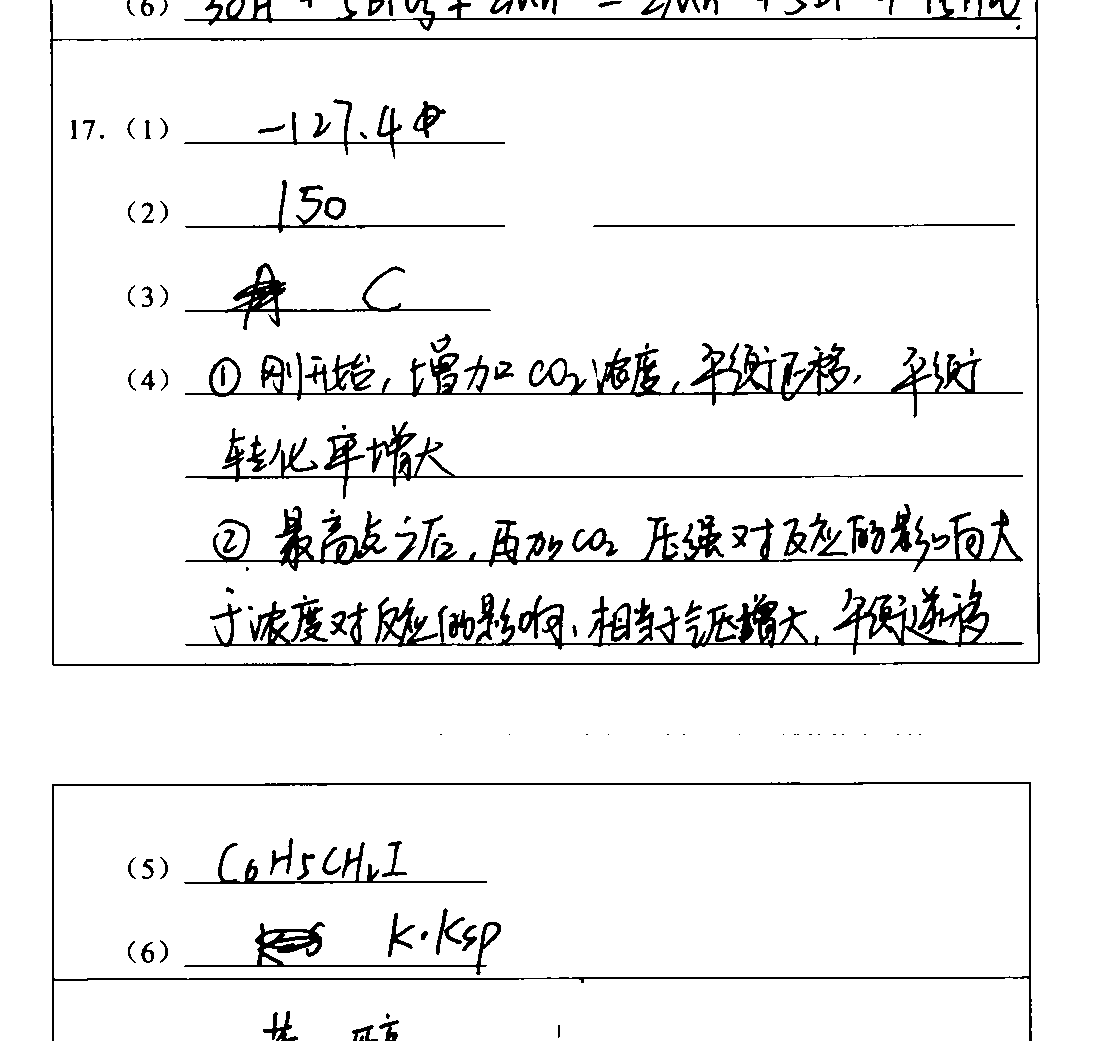 (6)
17. (1) -127.4
(2) 150
(3) C
(4) ① 刚开始, 增加 CO₂ 浓度, 平衡正移, 平衡
转化率增大
② 最高点之后, 再加 CO₂ 压强对反应的影响大
于浓度对反应的影响, 相当于气压增大, 平衡逆移
(5) C₆H₅CH₂I
(6) K·Ksp